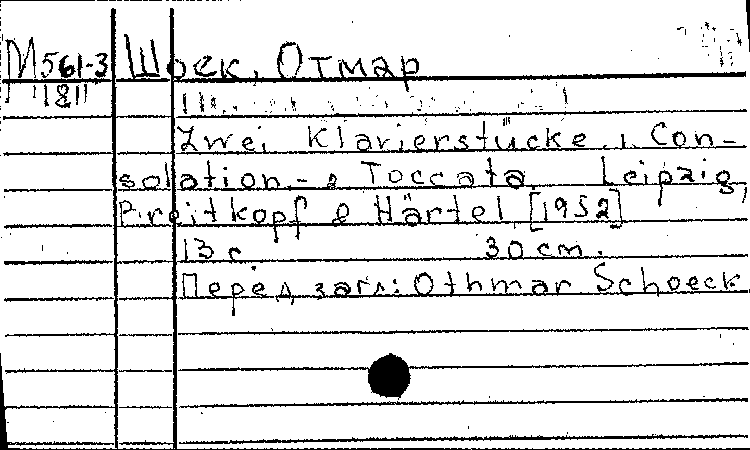 М561-3 Шоек, Отмар
1811
Zwei Klavierstücke. 1. Con-
solation. - 2 Toccata Leipzig,
Breitkopf & Härtel [1952]
13 с. 30 cm.
Перед загл: Othmar Schoeck